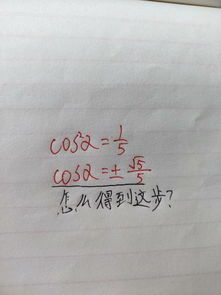 cos²α=1/5
cosα=±√5/5
怎么得到这步?